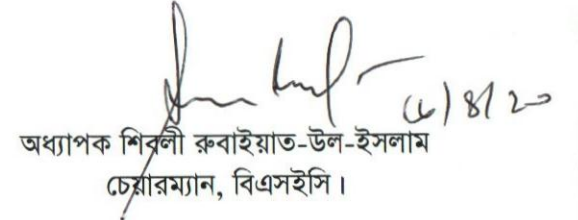 অধ্যাপক শিবলী রুবাইয়াত-উল-ইসলাম
চেয়ারম্যান, বিএসইসি।